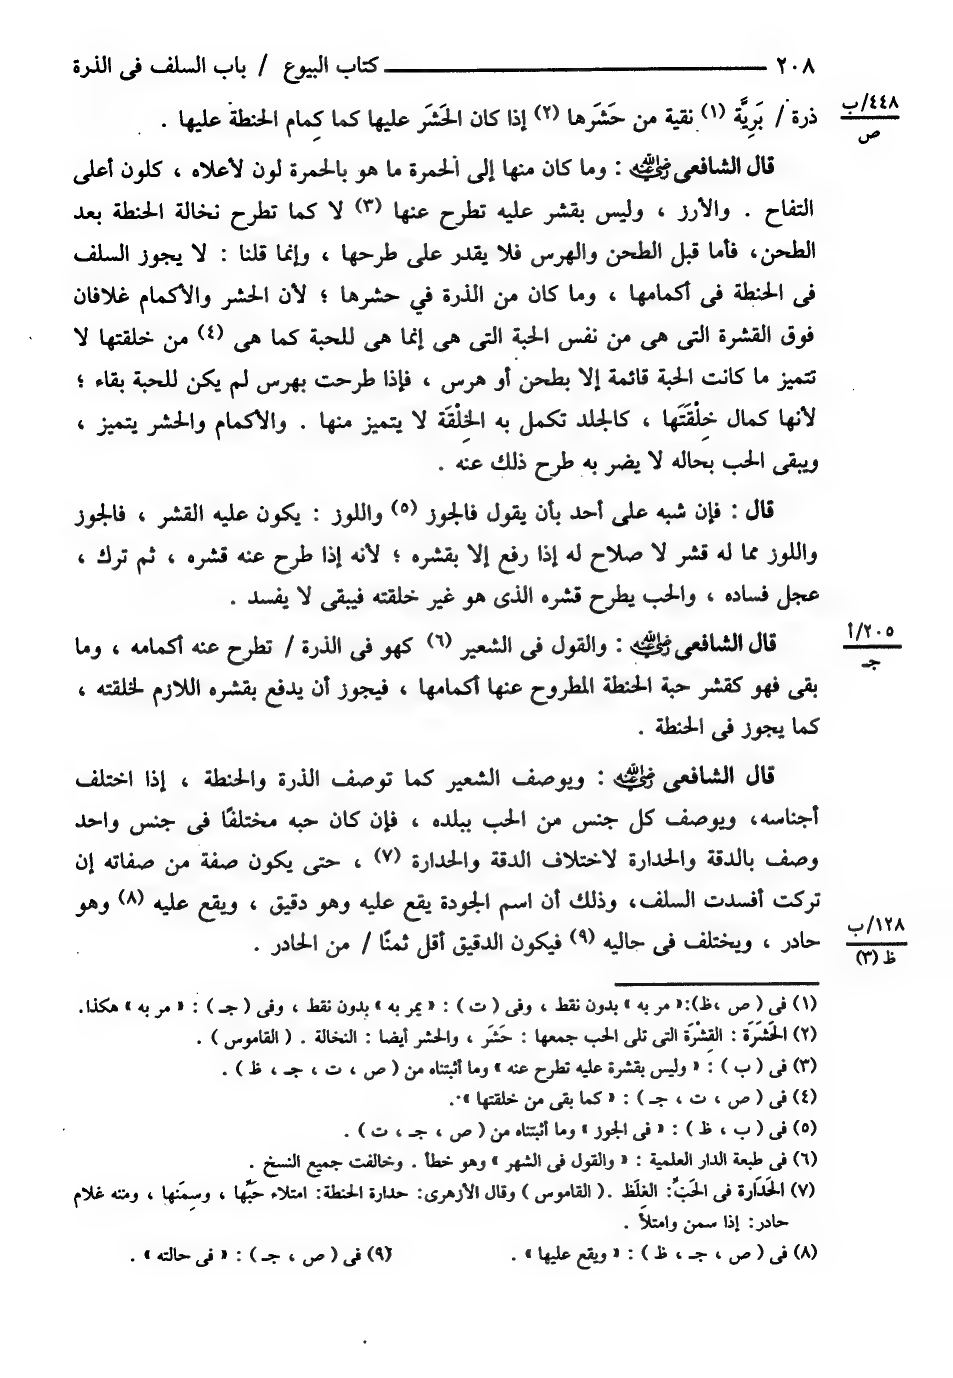 ٢٠٨ ــــــــــــــــــــ كتاب البيوع / باب السلف فى الذرة
ذرة / بَرِيَّة (١) نقية من حَشَرها (٢) إذا كان الحَشَر عليها كما كِمام الحنطة عليها .
٤٤٨/ب
ص
قال الشافعى رضي الله عنه : وما كان منها إلى الحمرة ما هو بالحمرة لون لأعلاه ، كلون أعلى
التفاح . والأرز ، وليس بقشر عليه تطرح عنها (٣) لا كما تطرح نخالة الحنطة بعد
الطحن، فأما قبل الطحن والهرس فلا يقدر على طرحها ، وإنما قلنا : لا يجوز السلف
فى الحنطة فى أكمامها ، وما كان من الذرة في حشرها ؛ لأن الحشر والأكمام غلافان
فوق القشرة التى هى من نفس الحبة التى هى إنما هى للحبة كما هى (٤) من خلقتها لا
تتميز ما كانت الحبة قائمة إلا بطحن أو هرس ، فإذا طرحت بهرس لم يكن للحبة بقاء ؛
لأنها كمال خِلْقَتَها ، كالجلد تكمل به الخِلْقَة لا يتميز منها . والأكمام والحشر يتميز ،
ويبقى الحب بحاله لا يضر به طرح ذلك عنه .
قال : فإن شبه على أحد بأن يقول فالجوز (٥) واللوز : يكون عليه القشر ، فالجوز
واللوز مما له قشر لا صلاح له إذا رفع إلا بقشره ؛ لأنه إذا طرح عنه قشره ، ثم ترك ،
عجل فساده ، والحب يطرح قشره الذى هو غير خلقته فيبقى لا يفسد .
قال الشافعى رضي الله عنه : والقول فى الشعير (٦) كهو فى الذرة / تطرح عنه أكمامه ، وما
٢٠٥/أ
جـ
بقى فهو كقشر حبة الحنطة المطروح عنها أكمامها ، فيجوز أن يدفع بقشره اللازم لخلقته ،
كما يجوز فى الحنطة .
قال الشافعى رضي الله عنه : ويوصف الشعير كما توصف الذرة والحنطة ، إذا اختلف
أجناسه، ويوصف كل جنس من الحب ببلده ، فإن كان حبه مختلفًا فى جنس واحد
وصف بالدقة والحدارة لاختلاف الدقة والحدارة (٧) ، حتى يكون صفة من صفاته إن
تركت أفسدت السلف، وذلك أن اسم الجودة يقع عليه وهو دقيق ، ويقع عليه (٨) وهو
حادر ، ويختلف فى حاليه (٩) فيكون الدقيق أقل ثمنًا / من الحادر .
١٢٨/ب
ظ (٣)
(١) فى ( ص ،ظ):« مر به » بدون نقط ، وفى ( ت ) : « يمر به » بدون نقط ، وفى ( جـ ) : « مر به » هكذا.
(٢) الحَشَرَة : القِشْرَة التى تلى الحب جمعها : حَشَر ، والحشر أيضا : النخالة . ( القاموس ) .
(٣) فى ( ب ) : « وليس بقشرة عليه تطرح عنه » وما أثبتناه من ( ص ، ت ، جـ ، ظ ) .
(٤) فى ( ص ، ت ، جـ ) : « كما بقى من خلقتها ».
(٥) فى ( ب ، ظ ) : « فى الجوز » وما أثبتناه من ( ص ، جـ ، ت ) .
(٦) فى طبعة الدار العلمية : « والقول فى الشهر » وهو خطأ . وخالفت جميع النسخ .
(٧) الحَدَارة فى الحَبِّ: الغِلَظ .( القاموس ) وقال الأزهرى: حدارة الحنطة: امتلاء حَبِّها ، وسِمَنها ، ومنه غلام
حادر: إذا سمن وامتلأ .
(٨) فى ( ص ، جـ ، ظ ) : « ويقع عليها » . (٩) فى ( ص ، جـ ) : « فى حالته » .